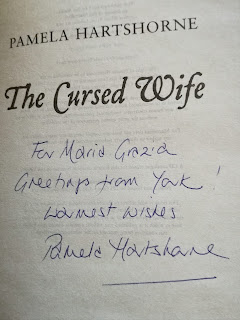 PAMELA HARTSHORNE
The Cursed Wife
For Maria Grazia
Greetings from York!
Warmest wishes
Pamela Hartshorne